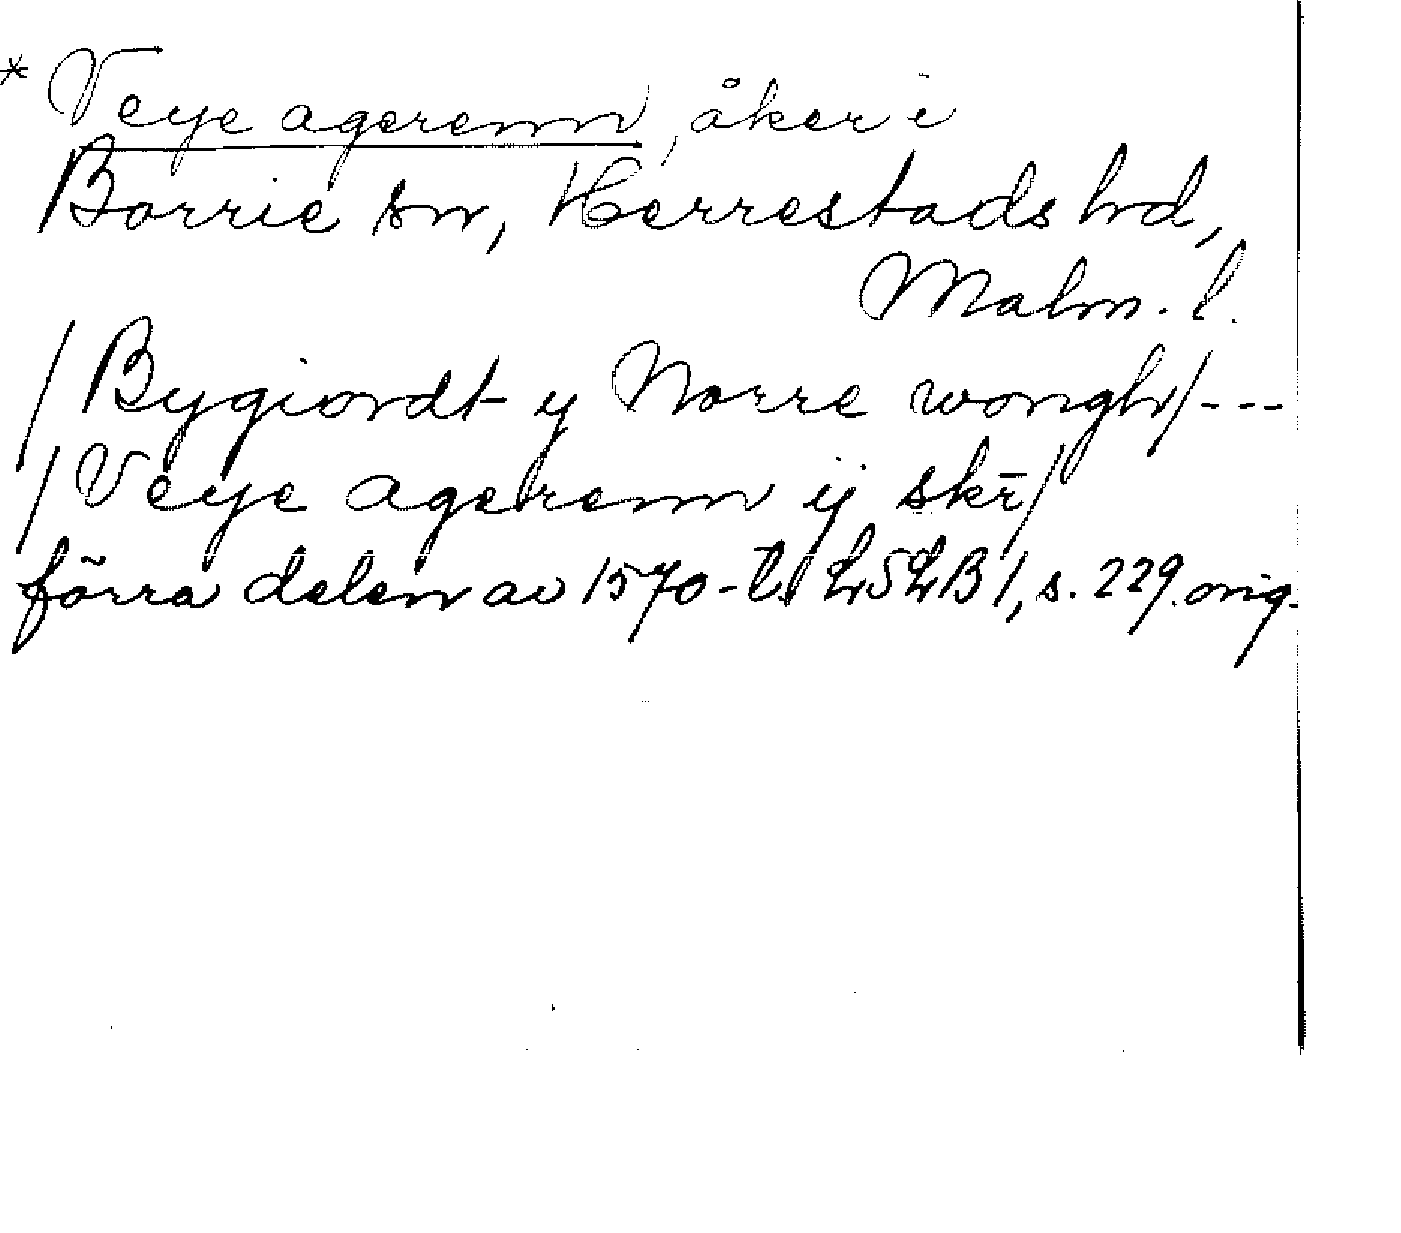 * Veye agerenn, åker i
Borrie sn, Herrestads hd,
Malm. l.
/Bygiordt y Norre wongh/---
/Veye agerenn ij skr̄/
förra delen av 1570-t. LSLB 1, s. 229. orig.